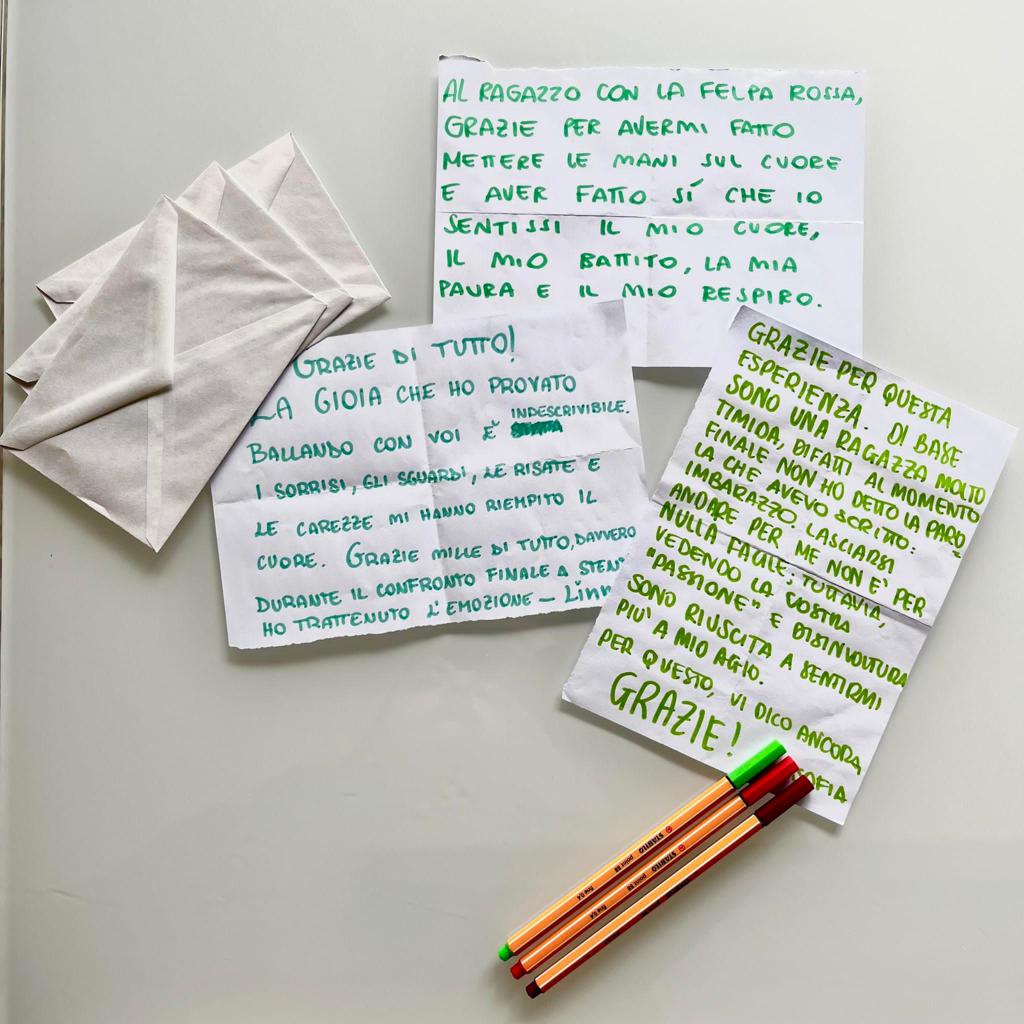 AL RAGAZZO CON LA FELPA ROSSA,
GRAZIE PER AVERMI FATTO
METTERE LE MANI SUL CUORE
E AVER FATTO SÍ CHE IO
SENTISSI IL MIO CUORE,
IL MIO BATTITO, LA MIA
PAURA E IL MIO RESPIRO.
GRAZIE DI TUTTO!
LA GIOIA CHE HO PROVATO
BALLANDO CON VOI È INDESCRIVIBILE.
I SORRISI, GLI SGUARDI, LE RISATE E
LE CAREZZE MI HANNO RIEMPITO IL
CUORE. GRAZIE MILLE DI TUTTO, DAVVERO
DURANTE IL CONFRONTO FINALE A STEN
HO TRATTENUTO L'EMOZIONE – Linn
GRAZIE PER QUESTA
ESPERIENZA. DI BASE
SONO UNA RAGAZZA MOLTO
TIMIDA, DIFATTI AL MOMENTO
FINALE NON HO DETTO LA PARO
LA CHE AVEVO SCRITTO:
IMBARAZZO. LASCIARSI
ANDARE PER ME NON E' PER
NULLA FACILE; TUTTAVIA,
VEDENDO LA VOSTRA
"PASSIONE" E DISINVOLTURA
SONO RIUSCITA A SENTIRMI
PIU' A MIO AGIO.
PER QUESTO, VI DICO ANCORA,
GRAZIE!
OFIA
STABILO point 88 fine 0,4
STABILO point 88 fine 0,4